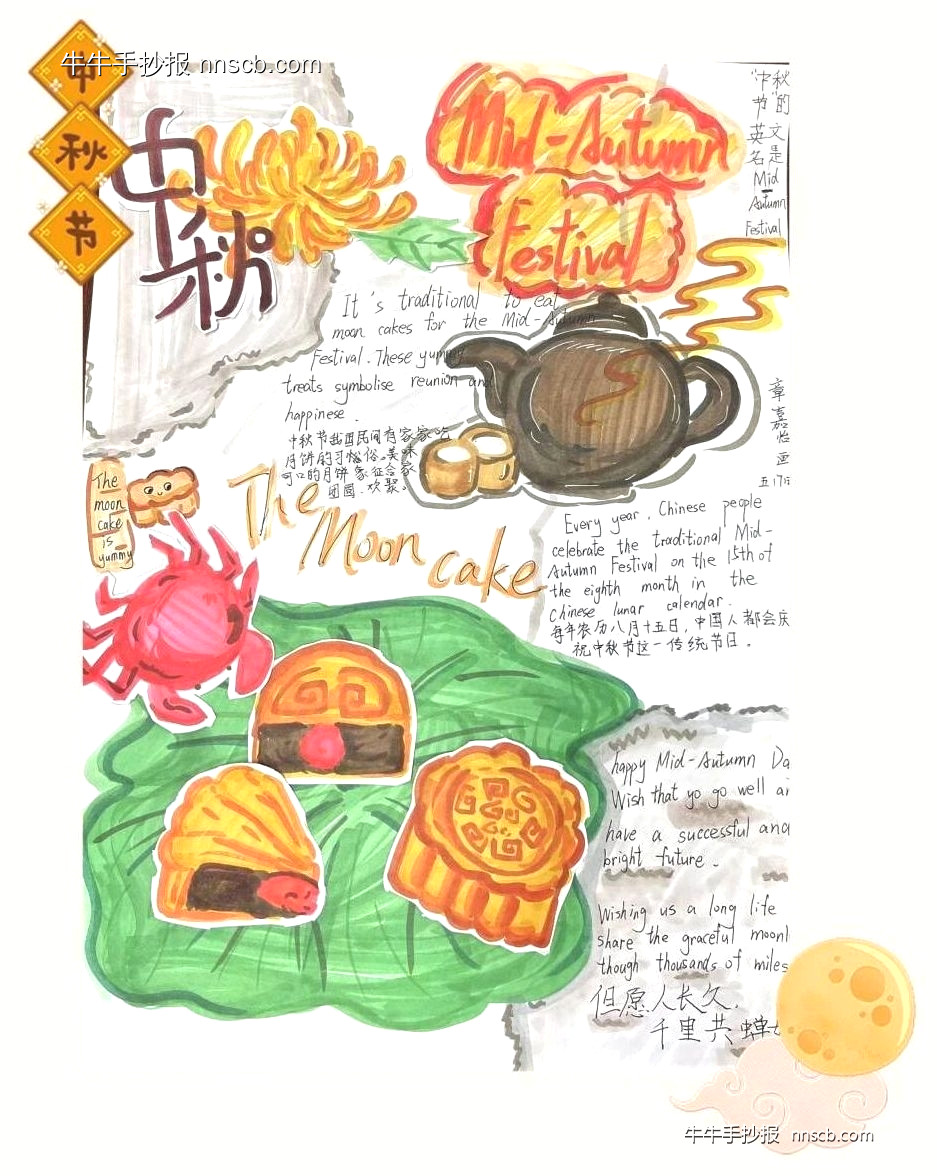 牛牛手抄报 nnscb.com
中
秋
节
中秋
Mid-Autumn
Festival
"中秋
节"的
英文
名是
Mid
-
Autumn
Festival
It's traditional to eat
moon cakes for the Mid-Autumn
Festival. These yummy
treats symbolise reunion and
happinese.
中秋节我国民间有家家吃
月饼的习俗。美味
可口的月饼象征合家
团圆、欢聚。
章
嘉
怡
画
五(7)
The
moon
cake
is
yummy
The
Moon
cake
Every year, Chinese people
celebrate the traditional Mid-
Autumn Festival on the 15th of
the eighth month in the
Chinese lunar calendar.
每年农历八月十五日,中国人都会庆
祝中秋节这一传统节日。
happy Mid-Autumn Da
Wish that yo go well
have a successful and
bright future.
Wishing us a long life
share the graceful moonl
though thousands of miles
但愿人长久,
千里共蝉
牛牛手抄报 nnscb.com